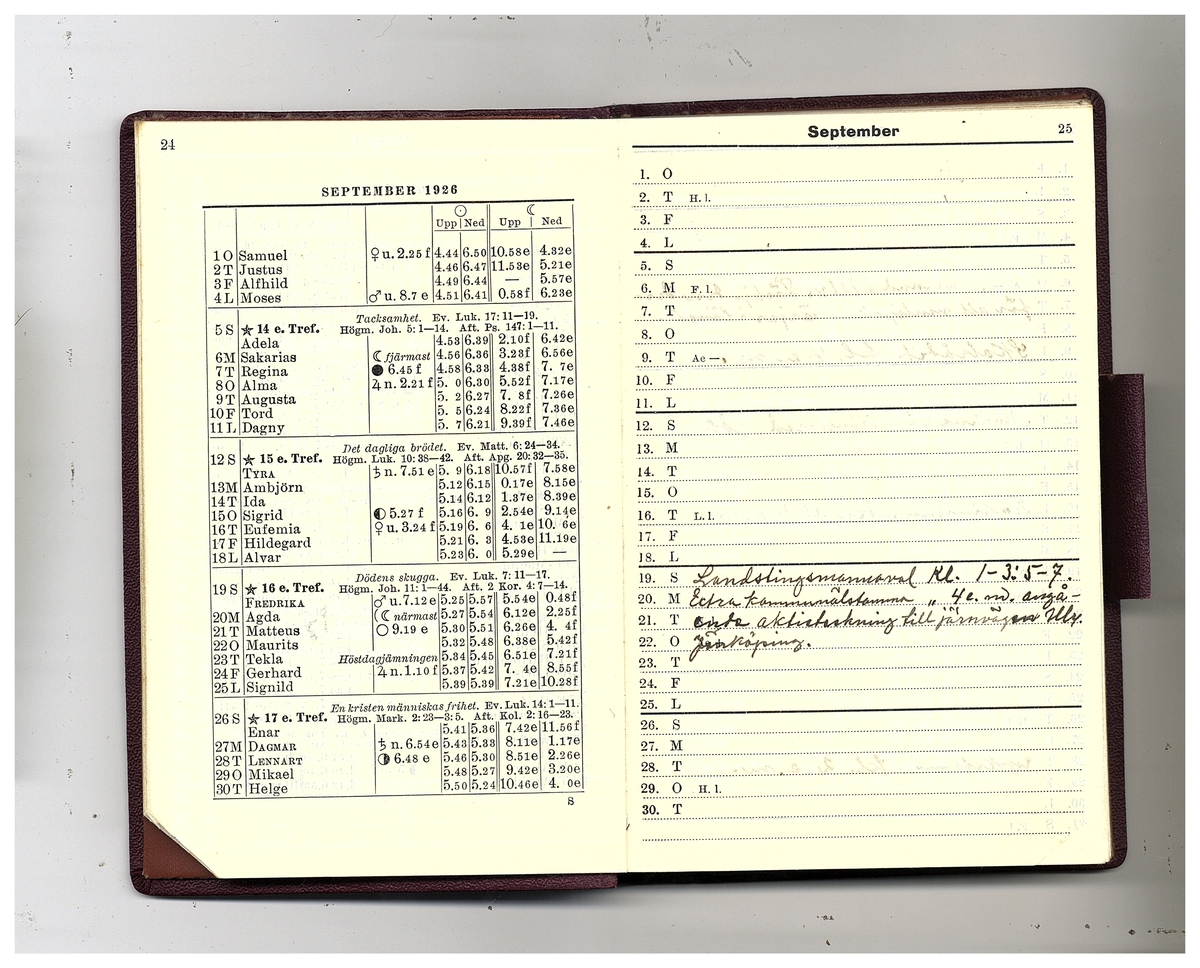 24
SEPTEMBER 1926
☉ ☾
Upp Ned Upp Ned
1 O Samuel ♀ u. 2.25 f 4.44 6.50 10.58e 4.32e
2 T Justus 4.46 6.47 11.53e 5.21e
3 F Alfhild 4.49 6.44 — 5.57e
4 L Moses ♂ u. 8.7 e 4.51 6.41 0.58f 6.23e
Tacksamhet. Ev. Luk. 17: 11—19.
5 S ★ 14 e. Tref. Högm. Joh. 5: 1—14. Aft. Ps. 147: 1—11.
Adela 4.53 6.39 2.10f 6.42e
6 M Sakarias ☾ fjärmast 4.56 6.36 3.23f 6.56e
7 T Regina ● 6.45 f 4.58 6.33 4.38f 7. 7e
8 O Alma ♃ n. 2.21 f 5. 0 6.30 5.52f 7.17e
9 T Augusta 5. 2 6.27 7. 8f 7.26e
10 F Tord 5. 5 6.24 8.22f 7.36e
11 L Dagny 5. 7 6.21 9.39f 7.46e
Det dagliga brödet. Ev. Matt. 6: 24—34.
12 S ★ 15 e. Tref. Högm. Luk. 10: 38—42. Aft. Apg. 20: 32—35.
TYRA ♄ n. 7.51 e 5. 9 6.18 10.57f 7.58e
13 M Ambjörn 5.12 6.15 0.17e 8.15e
14 T Ida 5.14 6.12 1.37e 8.39e
15 O Sigrid ◐ 5.27 f 5.16 6. 9 2.54e 9.14e
16 T Eufemia ♀ u. 3.24 f 5.19 6. 6 4. 1e 10. 6e
17 F Hildegard 5.21 6. 3 4.53e 11.19e
18 L Alvar 5.23 6. 0 5.29e —
Dödens skugga. Ev. Luk. 7: 11—17.
19 S ★ 16 e. Tref. Högm. Joh. 11: 1—44. Aft. 2 Kor. 4: 7—14.
FREDRIKA ♂ u. 7.12 e 5.25 5.57 5.54e 0.48f
20 M Agda ☾ närmast 5.27 5.54 6.12e 2.25f
21 T Matteus ○ 9.19 e 5.30 5.51 6.26e 4. 4f
22 O Maurits 5.32 5.48 6.38e 5.42f
23 T Tekla Höstdagjämningen 5.34 5.45 6.51e 7.21f
24 F Gerhard ♃ n. 1.10 f 5.37 5.42 7. 4e 8.55f
25 L Signild 5.39 5.39 7.21e 10.28f
En kristen människas frihet. Ev. Luk. 14: 1—11.
26 S ★ 17 e. Tref. Högm. Mark. 2: 23—3: 5. Aft. Kol. 2: 16—23.
Enar 5.41 5.36 7.42e 11.56f
27 M DAGMAR ♄ n. 6.54e 5.43 5.33 8.11e 1.17e
28 T LENNART ◑ 6.48 e 5.46 5.30 8.51e 2.26e
29 O Mikael 5.48 5.27 9.42e 3.20e
30 T Helge 5.50 5.24 10.46e 4. 0e
S
September 25
1. O
2. T H. l.
3. F
4. L
5. S
6. M F. l.
7. T
8. O
9. T Ae —.
10. F
11. L
12. S
13. M
14. T
15. O
16. T L. l.
17. F
18. L
19. S Landstingsmannaval Kl. 1-3: 5-7.
20. M Extra kommunalstämma „ 4 e. m. angå-
21. T ende aktieteckning till järnvägen Ulr.
22. O Jönköping.
23. T
24. F
25. L
26. S
27. M
28. T
29. O H. l.
30. T